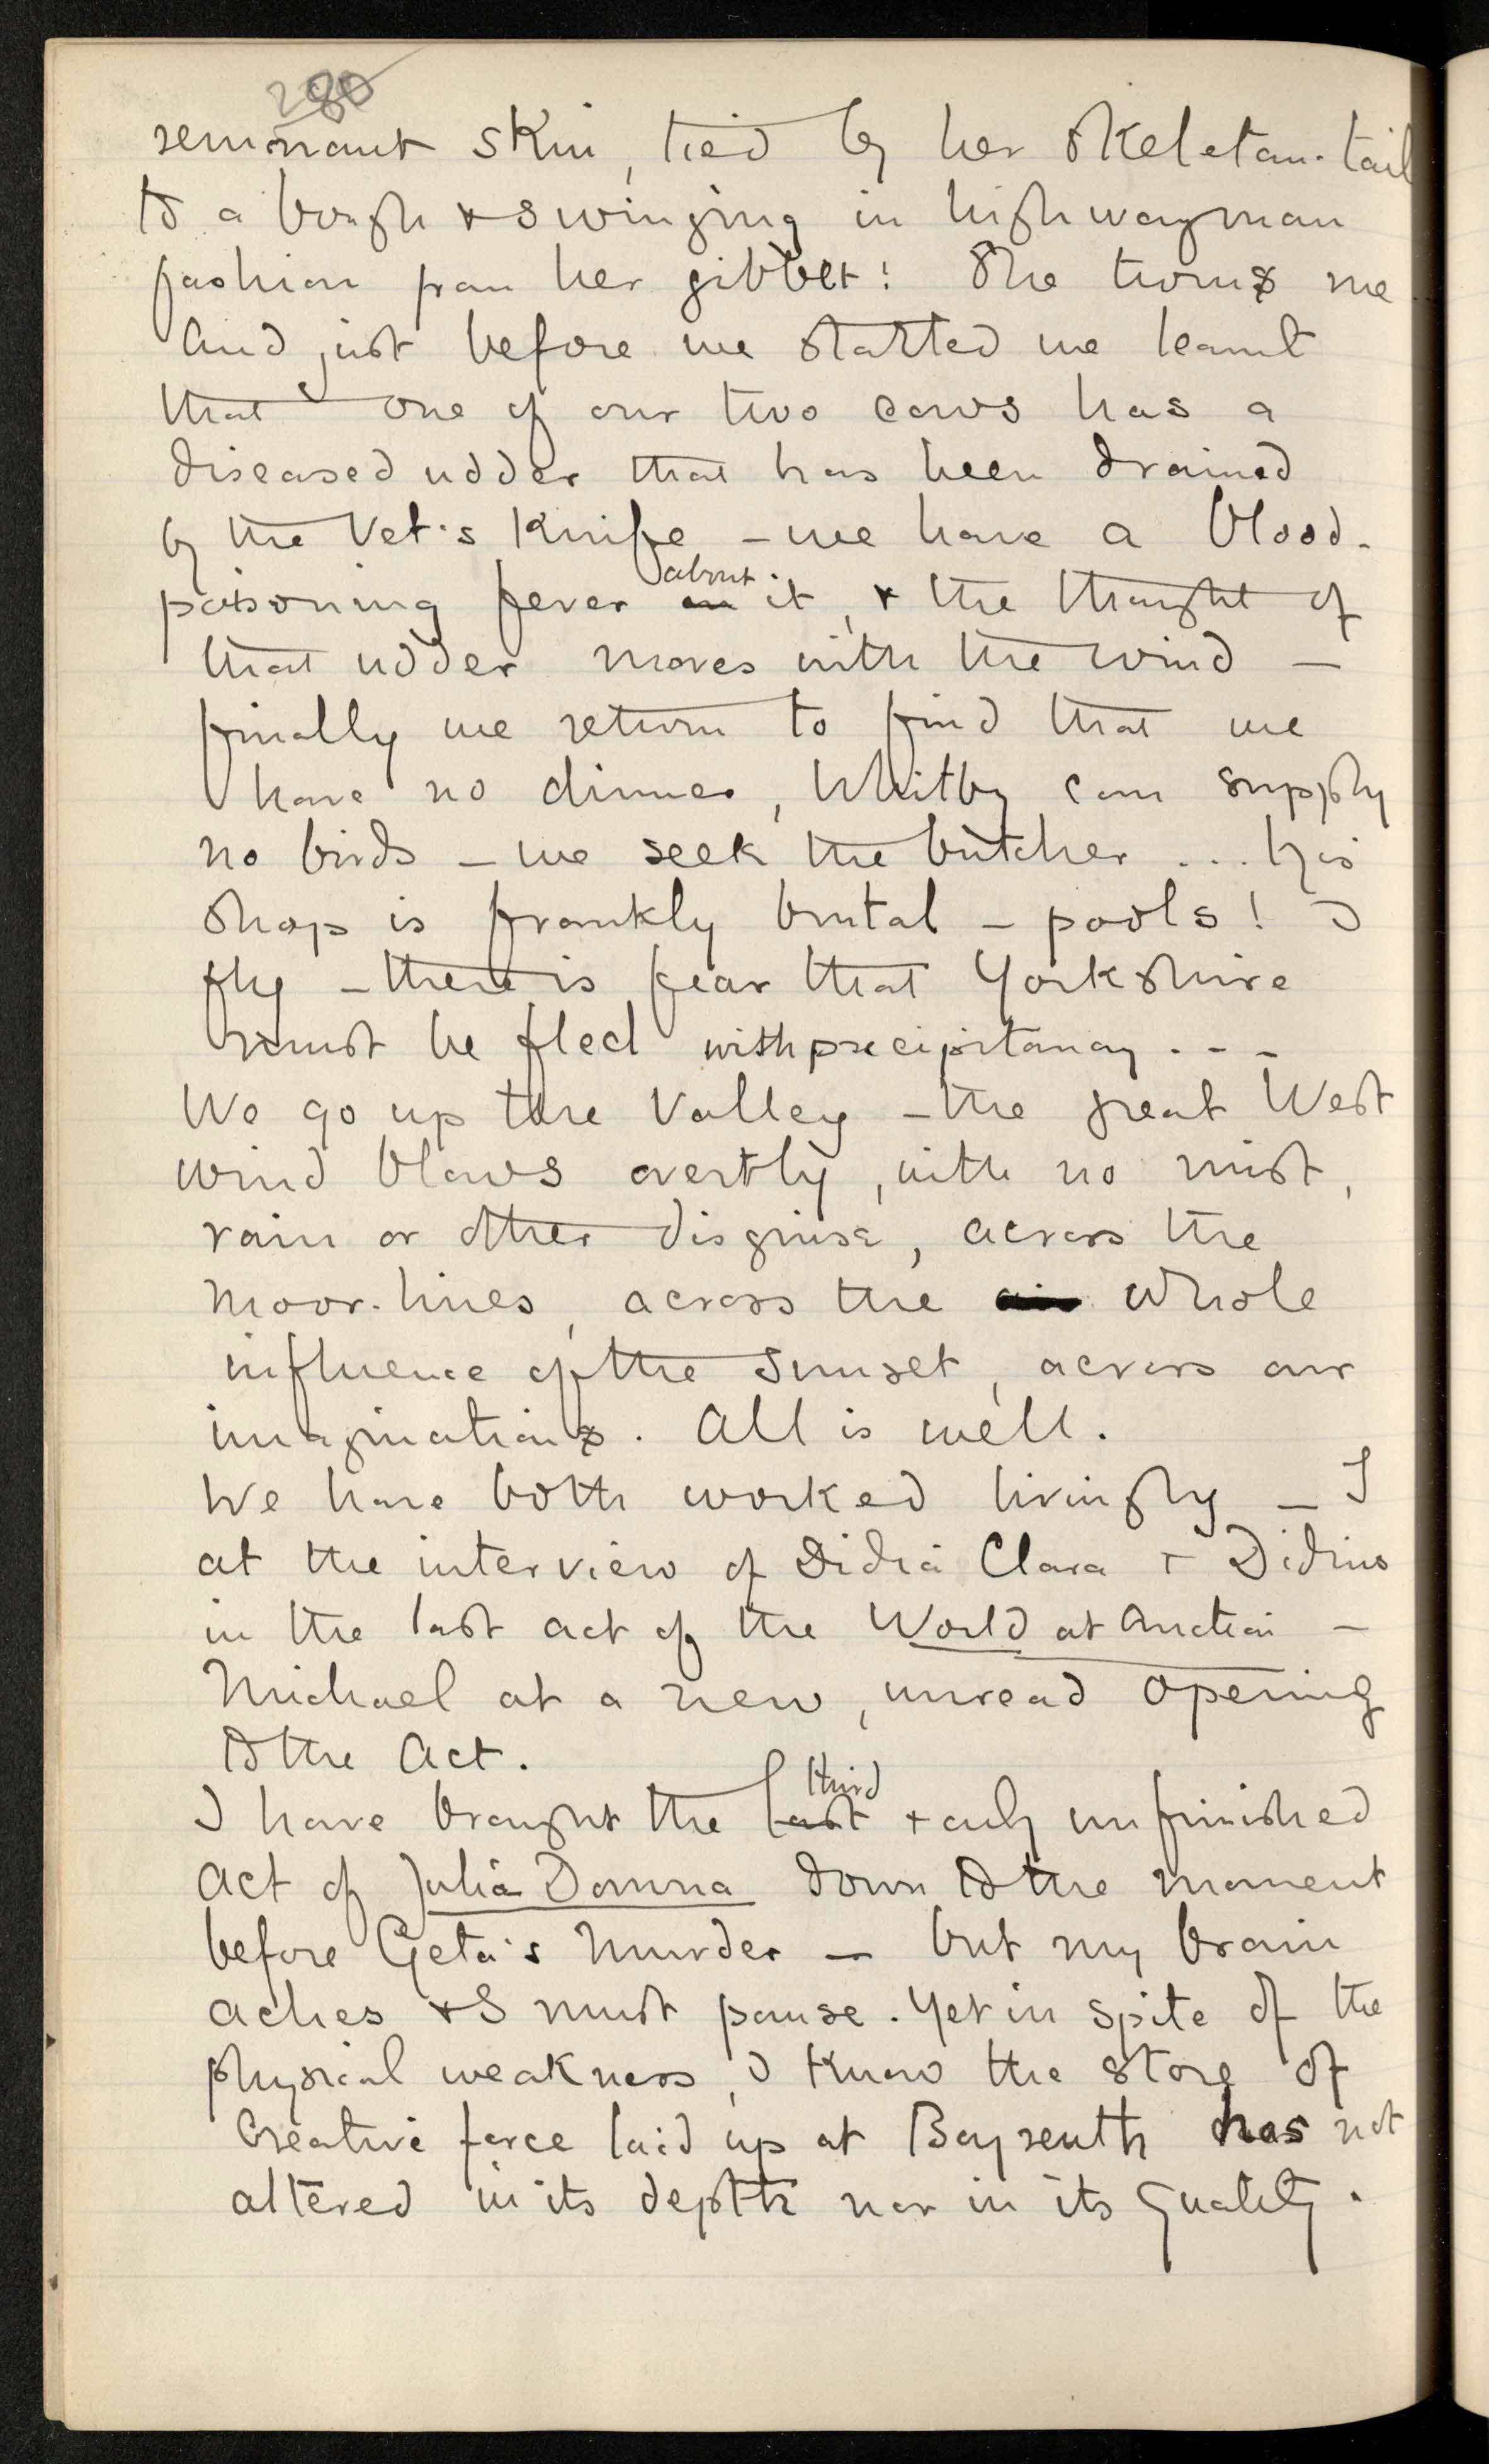 280
remnant skin, tied by her skeleton-tail
to a bough & swinging in highwayman
fashion from her gibbet! She turns me
And just before we started we learnt
that one of our two cows has a
diseased udder that has been drained
by the Vet's knife – we have a blood-
poisoning fever on about it, & the thought of
that udder moves with the wind –
finally we return to find that we
have no dinner, Whitby can supply
no birds – we seek the butcher ... his
shop is frankly brutal – pools! I
fly – there is fear that Yorkshire
must be fled with precipitancy ...
We go up the Valley – the great West
wind blows overtly, with no mist,
rain or other disguise, across the
moor-lines, across the air whole
influence of the sunset, across our
imaginations. All is well.
We have both worked livingly – I
at the interview of Didia Clara & Didius
in the last act of the World at Auction –
Michael at a new, unread opening
to the Act.
I have brought the last third & only unfinished
act of Julia Domna down to the moment
before Geta's Murder – but my brain
aches & I must pause. Yet in spite of the
physical weakness, I know the store of
Creative force laid up at Bayreuth has not
altered in its depth nor in its quality.